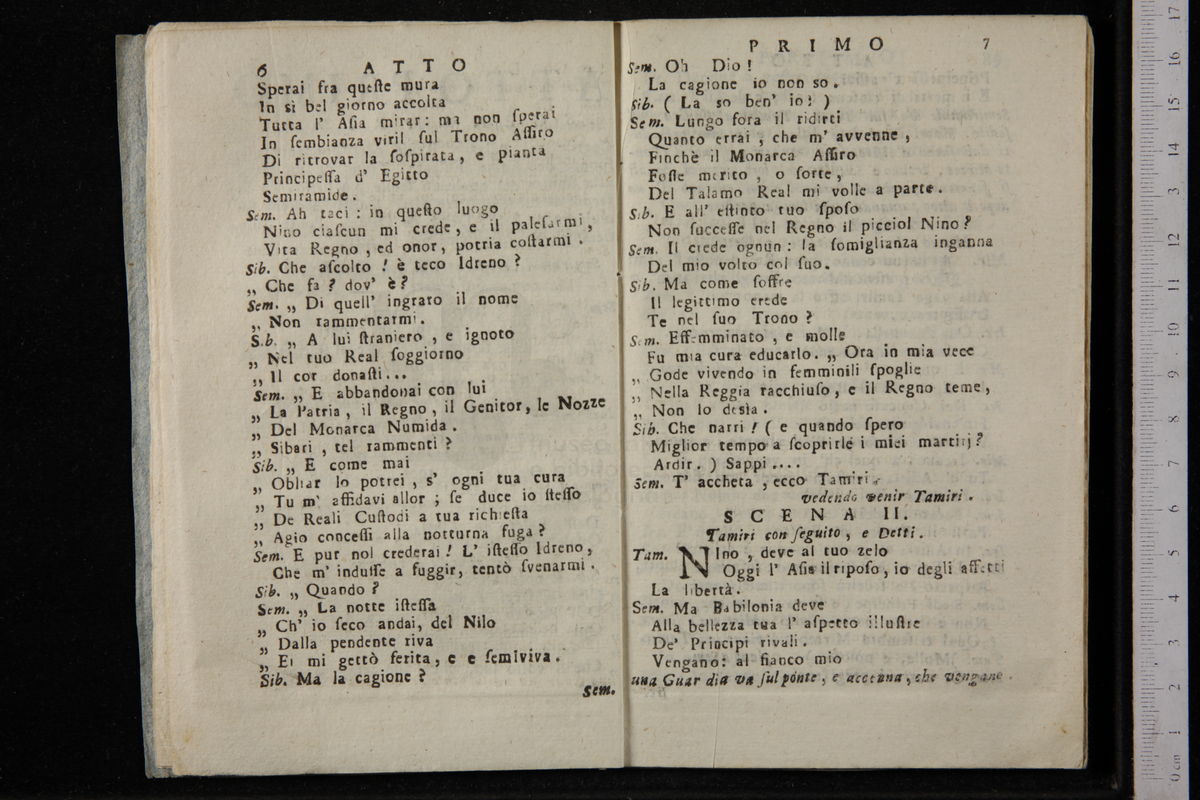 6 ATTO
Sperai fra queſte mura
In sì bel giorno accolta
Tutta l' Aſia mirar: ma non ſperai
In ſembianza viril ſul Trono Aſſiro
Di ritrovar la ſoſpirata, e pianta
Principeſſa d' Egitto
Semiramide.
Sem. Ah taci: in queſto luogo
Nino ciaſcun mi crede, e il paleſarmi,
Vita Regno, ed onor, potria coſtarmi.
Sib. Che aſcolto! è teco Idreno?
„ Che fa? dov' è?
Sem. „ Di quell' ingrato il nome
„ Non rammentarmi.
Sib. „ A lui ſtraniero, e ignoto
„ Nel tuo Real ſoggiorno
„ Il cor donaſti...
Sem. „ E abbandonai con lui
„ La Patria, il Regno, il Genitor, le Nozze
„ Del Monarca Numida.
„ Sibari, tel rammenti?
Sib. „ E come mai
„ Obliar lo potrei, s' ogni tua cura
„ Tu m' affidavi allor; ſe duce io ſteſſo
„ De Reali Cuſtodi a tua richieſta
„ Agio conceſſi alla notturna fuga?
Sem. E pur nol crederai! L' iſteſſo Idreno,
Che m' induſſe a fuggir, tentò ſvenarmi.
Sib. „ Quando?
Sem. „ La notte iſteſſa
„ Ch' io ſeco andai, del Nilo
„ Dalla pendente riva
„ Ei mi gettò ferita, e e ſemiviva.
Sib. Ma la cagione?
Sem.
PRIMO 7
Sem. Oh Dio!
La cagione io non so.
Sib. ( La so ben' io! )
Sem. Lungo fora il ridirti
Quanto errai, che m' avvenne,
Finchè il Monarca Aſſiro
Foſſe merito, o ſorte,
Del Talamo Real mi volle a parte.
Sib. E all' eſtinto tuo ſpoſo
Non ſucceſſe nel Regno il picciol Nino?
Sem. Il crede ognun: la ſomiglianza inganna
Del mio volto col ſuo.
Sib. Ma come ſoffre
Il legittimo erede
Te nel ſuo Trono?
Sem. Effemminato, e molle
Fu mia cura educarlo. „ Ora in mia vece
„ Gode vivendo in femminili ſpoglie
„ Nella Reggia racchiuſo, e il Regno teme,
„ Non lo desìa.
Sib. Che narri! ( e quando ſpero
Miglior tempo a ſcoprirle i miei martirj?
Ardir. ) Sappi....
Sem. T' accheta, ecco Tamiri.
vedendo venir Tamiri.
SCENA II.
Tamiri con ſeguito, e Detti.
Tam. NIno, deve al tuo zelo
Oggi l' Aſia il ripoſo, io degli affetti
La libertà.
Sem. Ma Babilonia deve
Alla bellezza tua l' aſpetto illuſtre
De' Principi rivali.
Vengano: al fianco mio
una Guar dia va ſul ponte, e accenna, che vengano.
0 cm 1 2 3 4 5 6 7 8 9 10 11 12 13 14 15 16 17